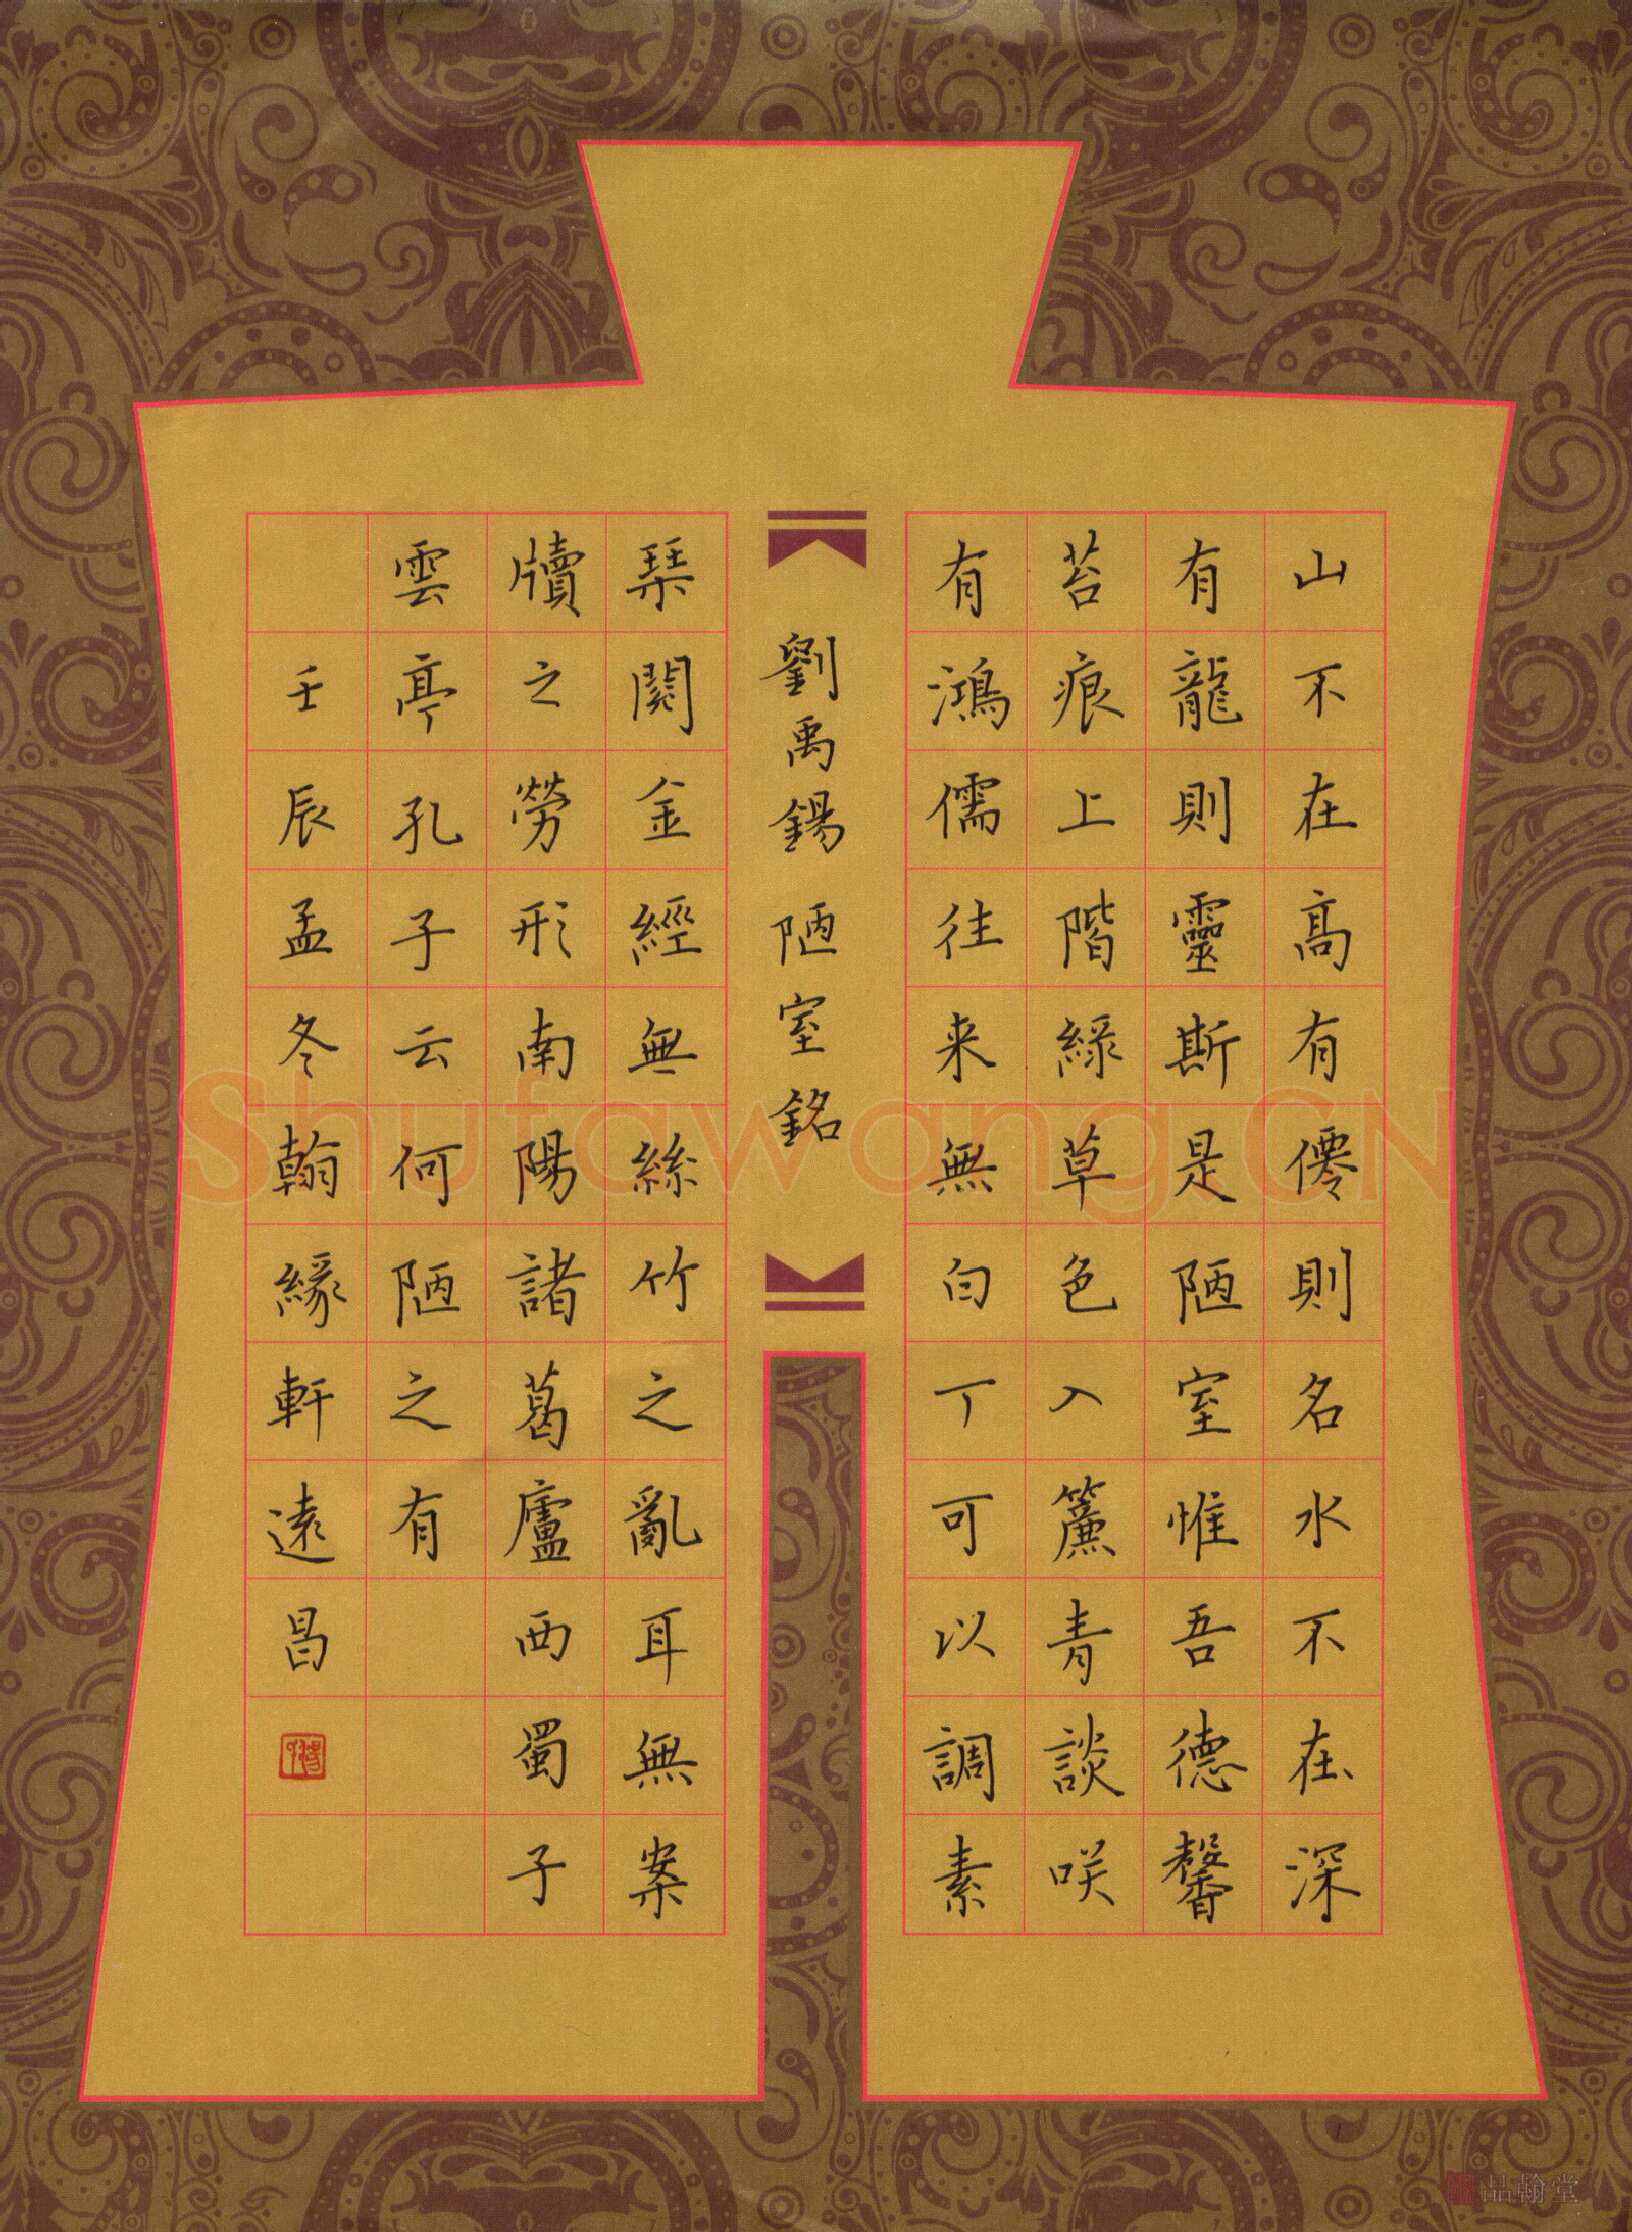 山不在高有僊則名水不在深
有龍則靈斯是陋室惟吾德馨
苔痕上階緑草色入簾青談咲
有鴻儒往来無白丁可以調素
劉禹錫陋室銘
琹閱金經無絲竹之亂耳無案
牘之勞形南陽諸葛廬西蜀子
雲亭孔子云何陋之有
壬辰孟冬翰緣軒遠昌
Shufawang.CN
品翰堂